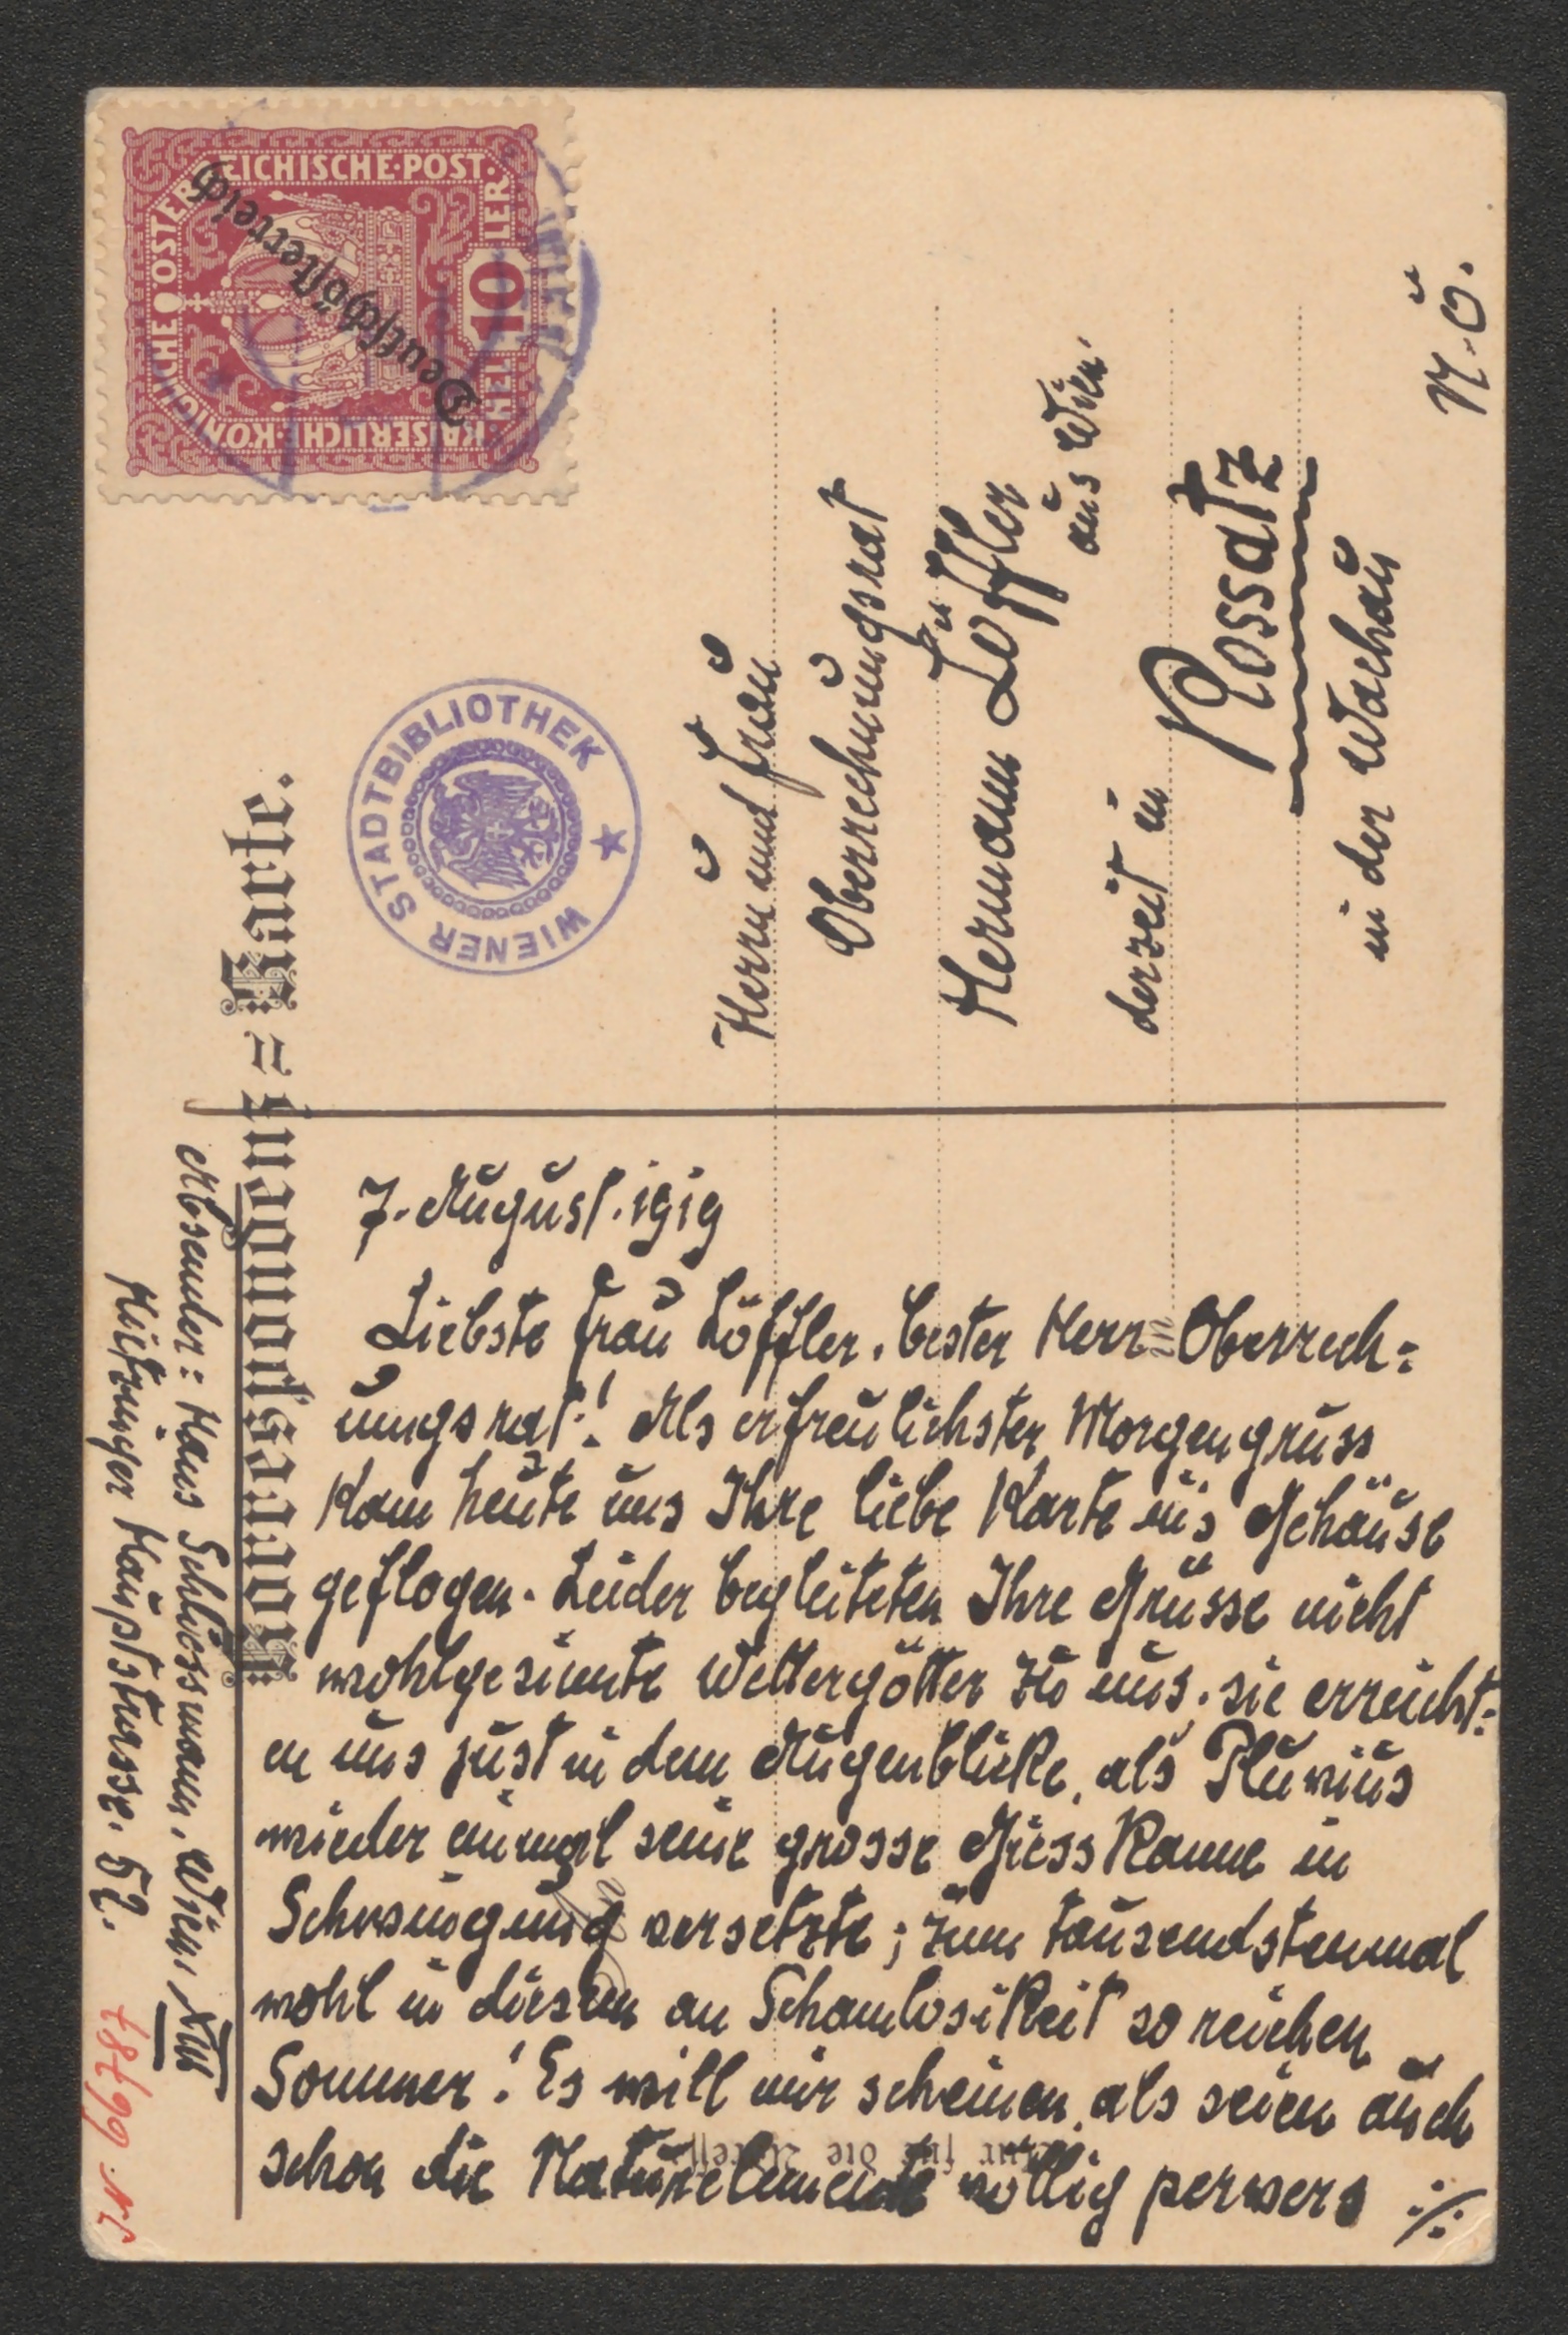 KAISERLICHE·KÖNIGLICHE·ÖSTERREICHISCHE·POST·
10 HELLER
Deutschösterreich
WIENER STADTBIBLIOTHEK
Korrespondenz=Karte.
Herrn und Frau
Oberrechnungsrat
Hermann Löffler
aus Wien.
derzeit in
Rossatz
in der Wachau
N.Ö.
7. August. 1919
Liebste Frau Löffler, bester Herr Oberrech=
nungsrat! Als erfreulichster Morgengruss
kam heute uns Ihre liebe Karte in's Gehäuse
geflogen. Leider begleiteten Ihre Grüsse nicht
wohlgesinnte Wettergötter zu uns. sie erreicht=
en uns just in dem Augenblicke, als Pluvius
wieder einmal seine grosse Giesskanne in
Schwingung versetzte; zum tausendstenmal
wohl in diesem an Schamlosikeit so reichen
Sommer! Es will mir scheinen, als seien auch
schon die Naturelemente völlig pervers ./.
Absender: Hans Schliessmann, Wien, XIII
Hietzinger Hauptstrasse. 52.